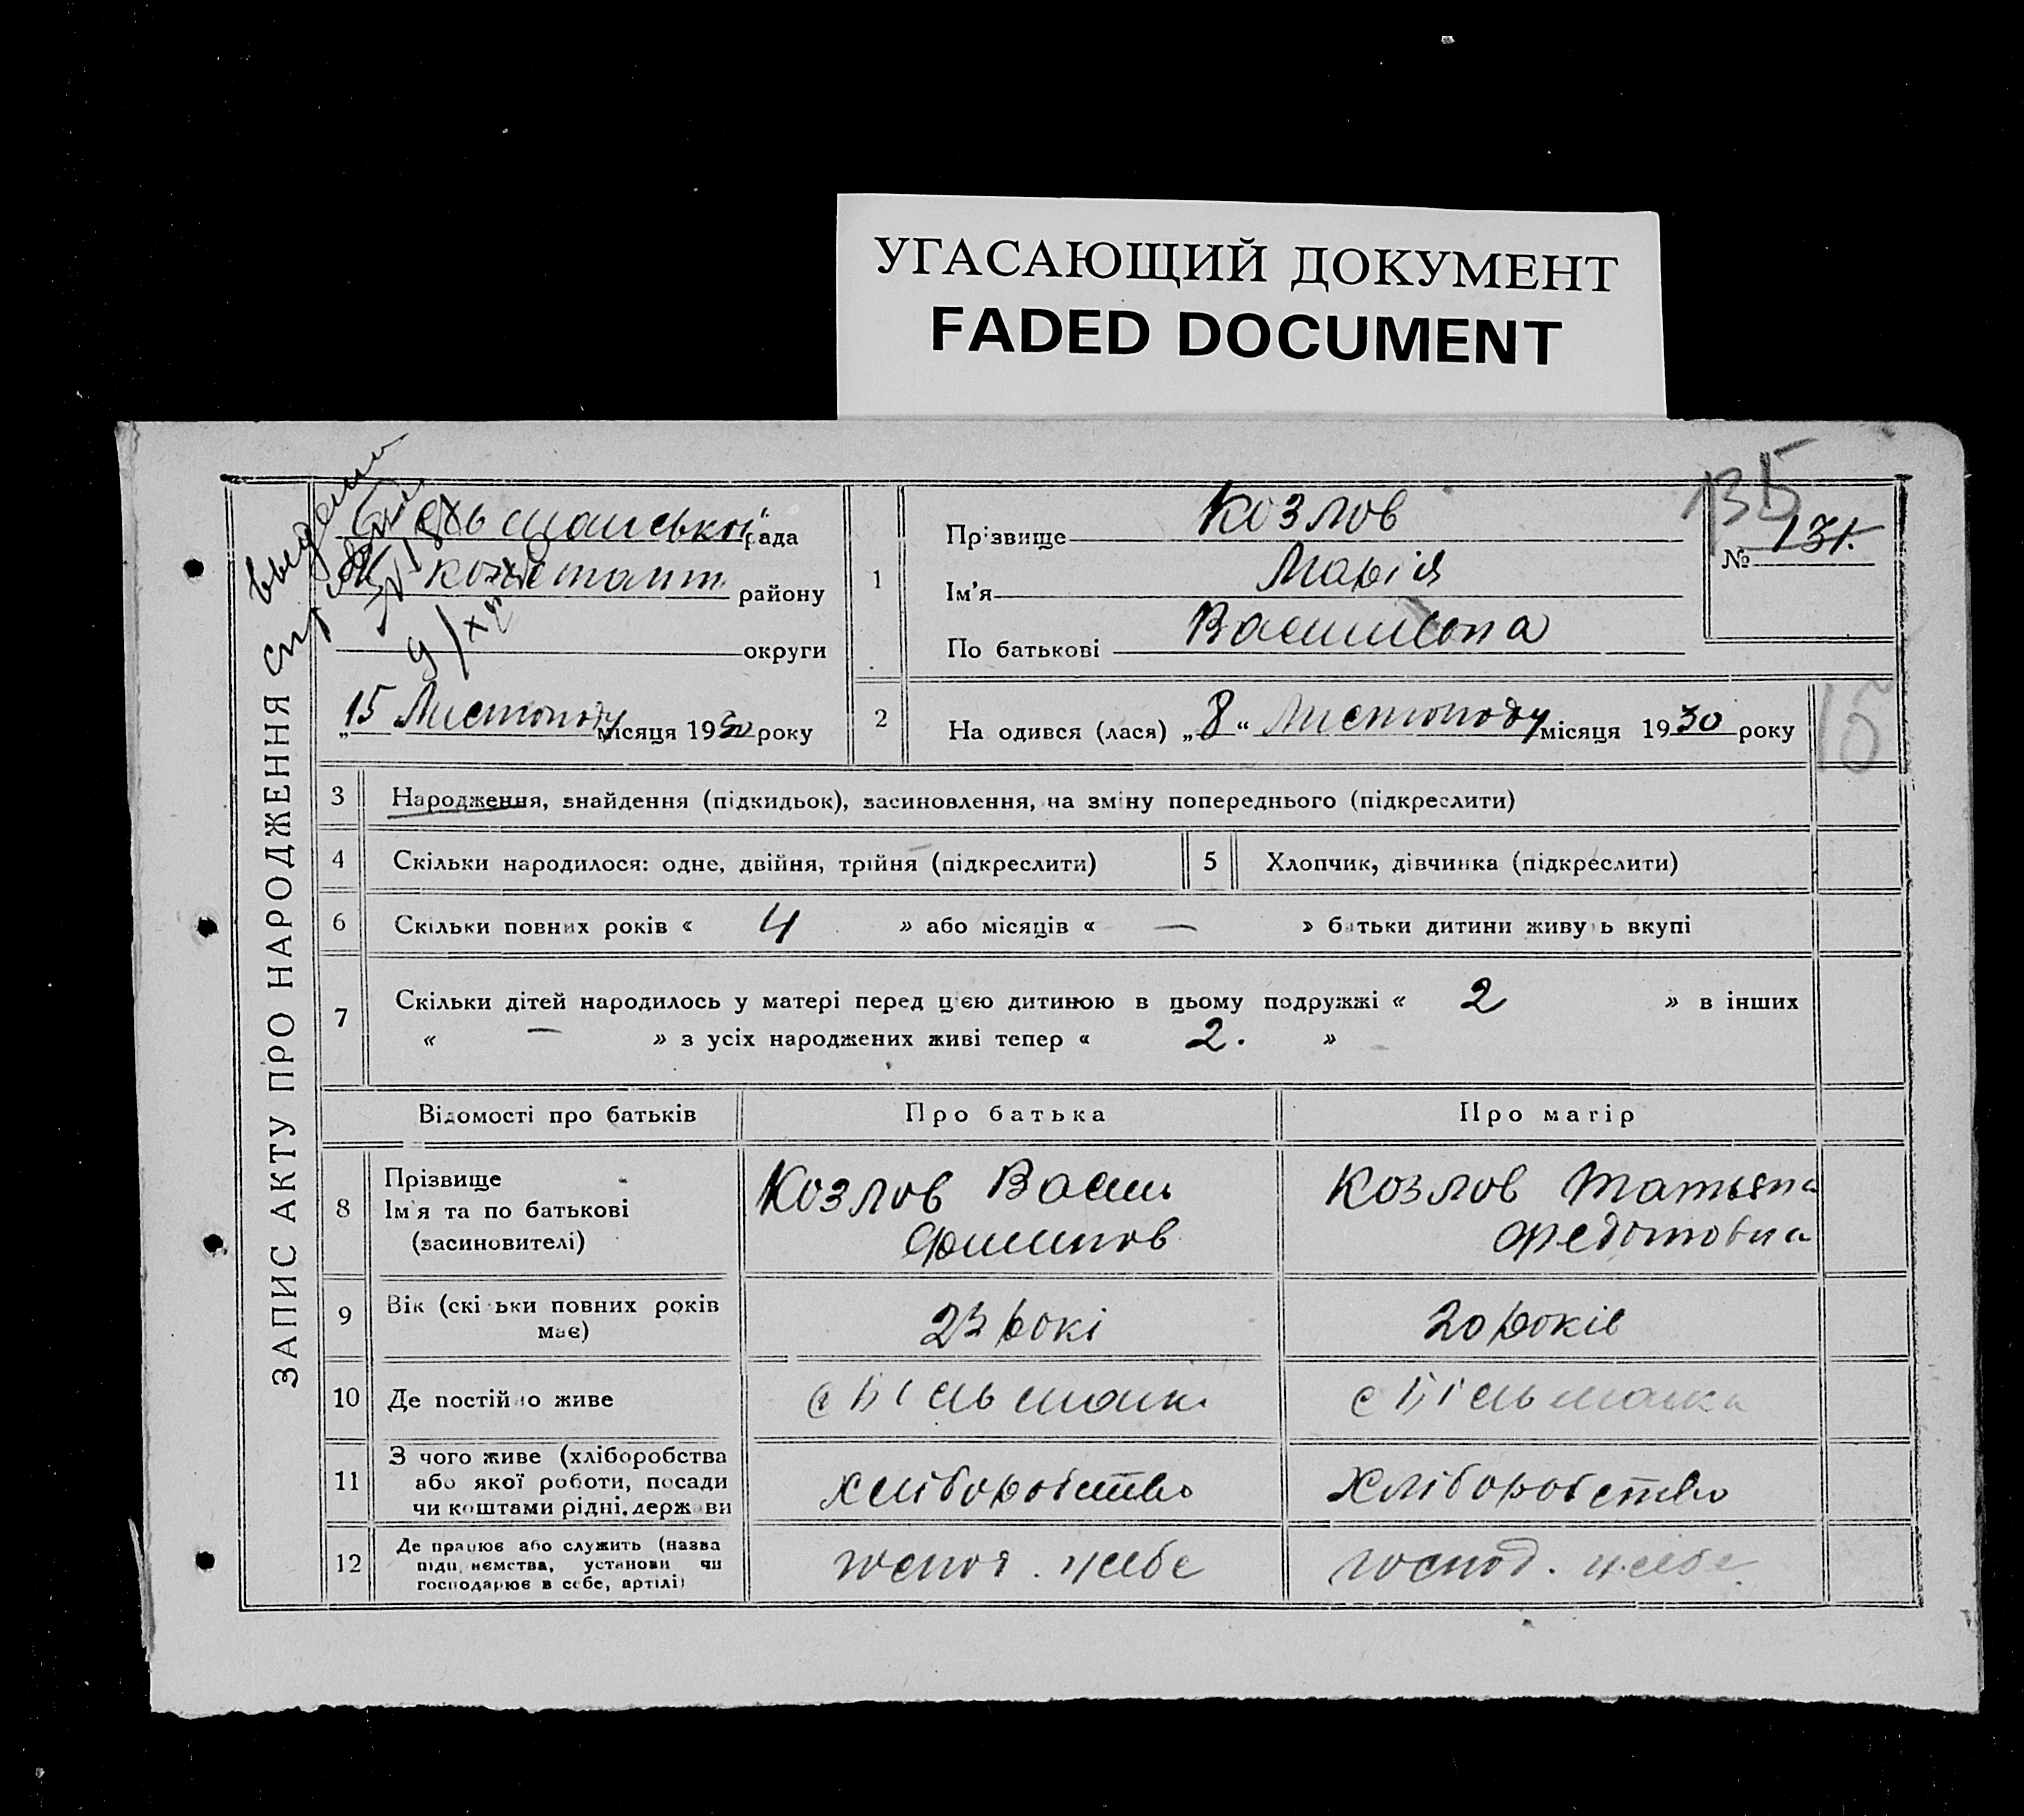 УГАСАЮЩИЙ ДОКУМЕНТ
FADED DOCUMENT
ЗАПИС АКТУ ПРО НАРОДЖЕННЯ
рада
району
округи
„15 Листопаду місяця 1930 року
135
№ 131.
1
Прізвище Козлов
Ім'я Марія
По батькові
2
На одився (лася) „8“ Листопаду місяця 1930 року
15
3 Народження, знайдення (підкидьок), засиновлення, на зміну попереднього (підкреслити)
4 Скільки народилося: одне, двійня, трійня (підкреслити)
5 Хлопчик, дівчинка (підкреслити)
6 Скільки повних років « 4 » або місяців « — » батьки дитини живу ь вкупі
7 Скільки дітей народилось у матері перед цією дитиною в цьому подружжі « 2 » в інших
« — » з усіх народжених живі тепер « 2. »
Відомості про батьків
Про батька
Про матір
8 Прізвище
Ім'я та по батькові
(засиновителі)
Козлов Василь
Филипов
Козлов Татьяна
Федотовна
9 Вік (скі ьки повних років
має)
23 рокі
20 років
10 Де постійно живе
с Більманк.
с Більманка
11 З чого живе (хліборобства
або якої роботи, посади
чи коштами рідні, держави
хліборобство
хліборобство
12 Де працює або служить (назва
підп ємства, установи чи
господарює в себе, артілі)
господ. у себе
господ. у себе